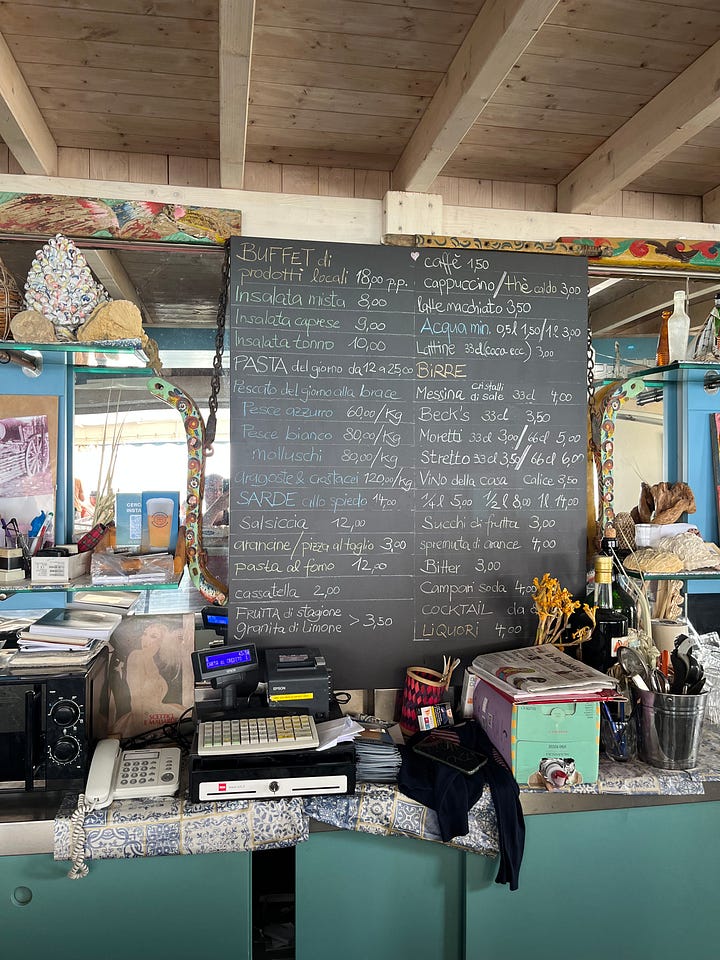 BUFFET di
prodotti locali 18,00 p.p.
Insalata mista 8,00
Insalata caprese 9,00
Insalata tonno 10,00
PASTA del giorno da 12 a 25,00
Pescato del giorno alla brace
Pesce azzurro 60,00/Kg
Pesce bianco 80,00/Kg
molluschi 80,00/Kg
aragoste & crostacei 120,00/Kg
SARDE allo spiedo 14,00
Salsiccia 12,00
arancine/pizza al taglio 3,00
pasta al forno 12,00
cassatella 2,00
FRUTTA di stagione
granita di Limone > 3,50
caffè 1,50
cappuccino/thè caldo 3,00
latte macchiato 3,50
Acqua min. 0,5 l 1,50/1 l 3,00
Lattine 33 cl (coca-ecc) 3,00
BIRRE
Messina cristalli di sale 33 cl 4,00
Beck's 33 cl 3,50
Moretti 33 cl 3,00/66 cl 5,00
Stretto 33 cl 3,50/66 cl 6,00
Vino della casa Calice 3,50
1/4 l 5,00 1/2 l 8,00 1 l 14,00
Succhi di frutta 3,00
spremuta di arance 4,00
Bitter 3,00
Campari soda 4,00
COCKTAIL da
LIQUORI 4,00
EPSON